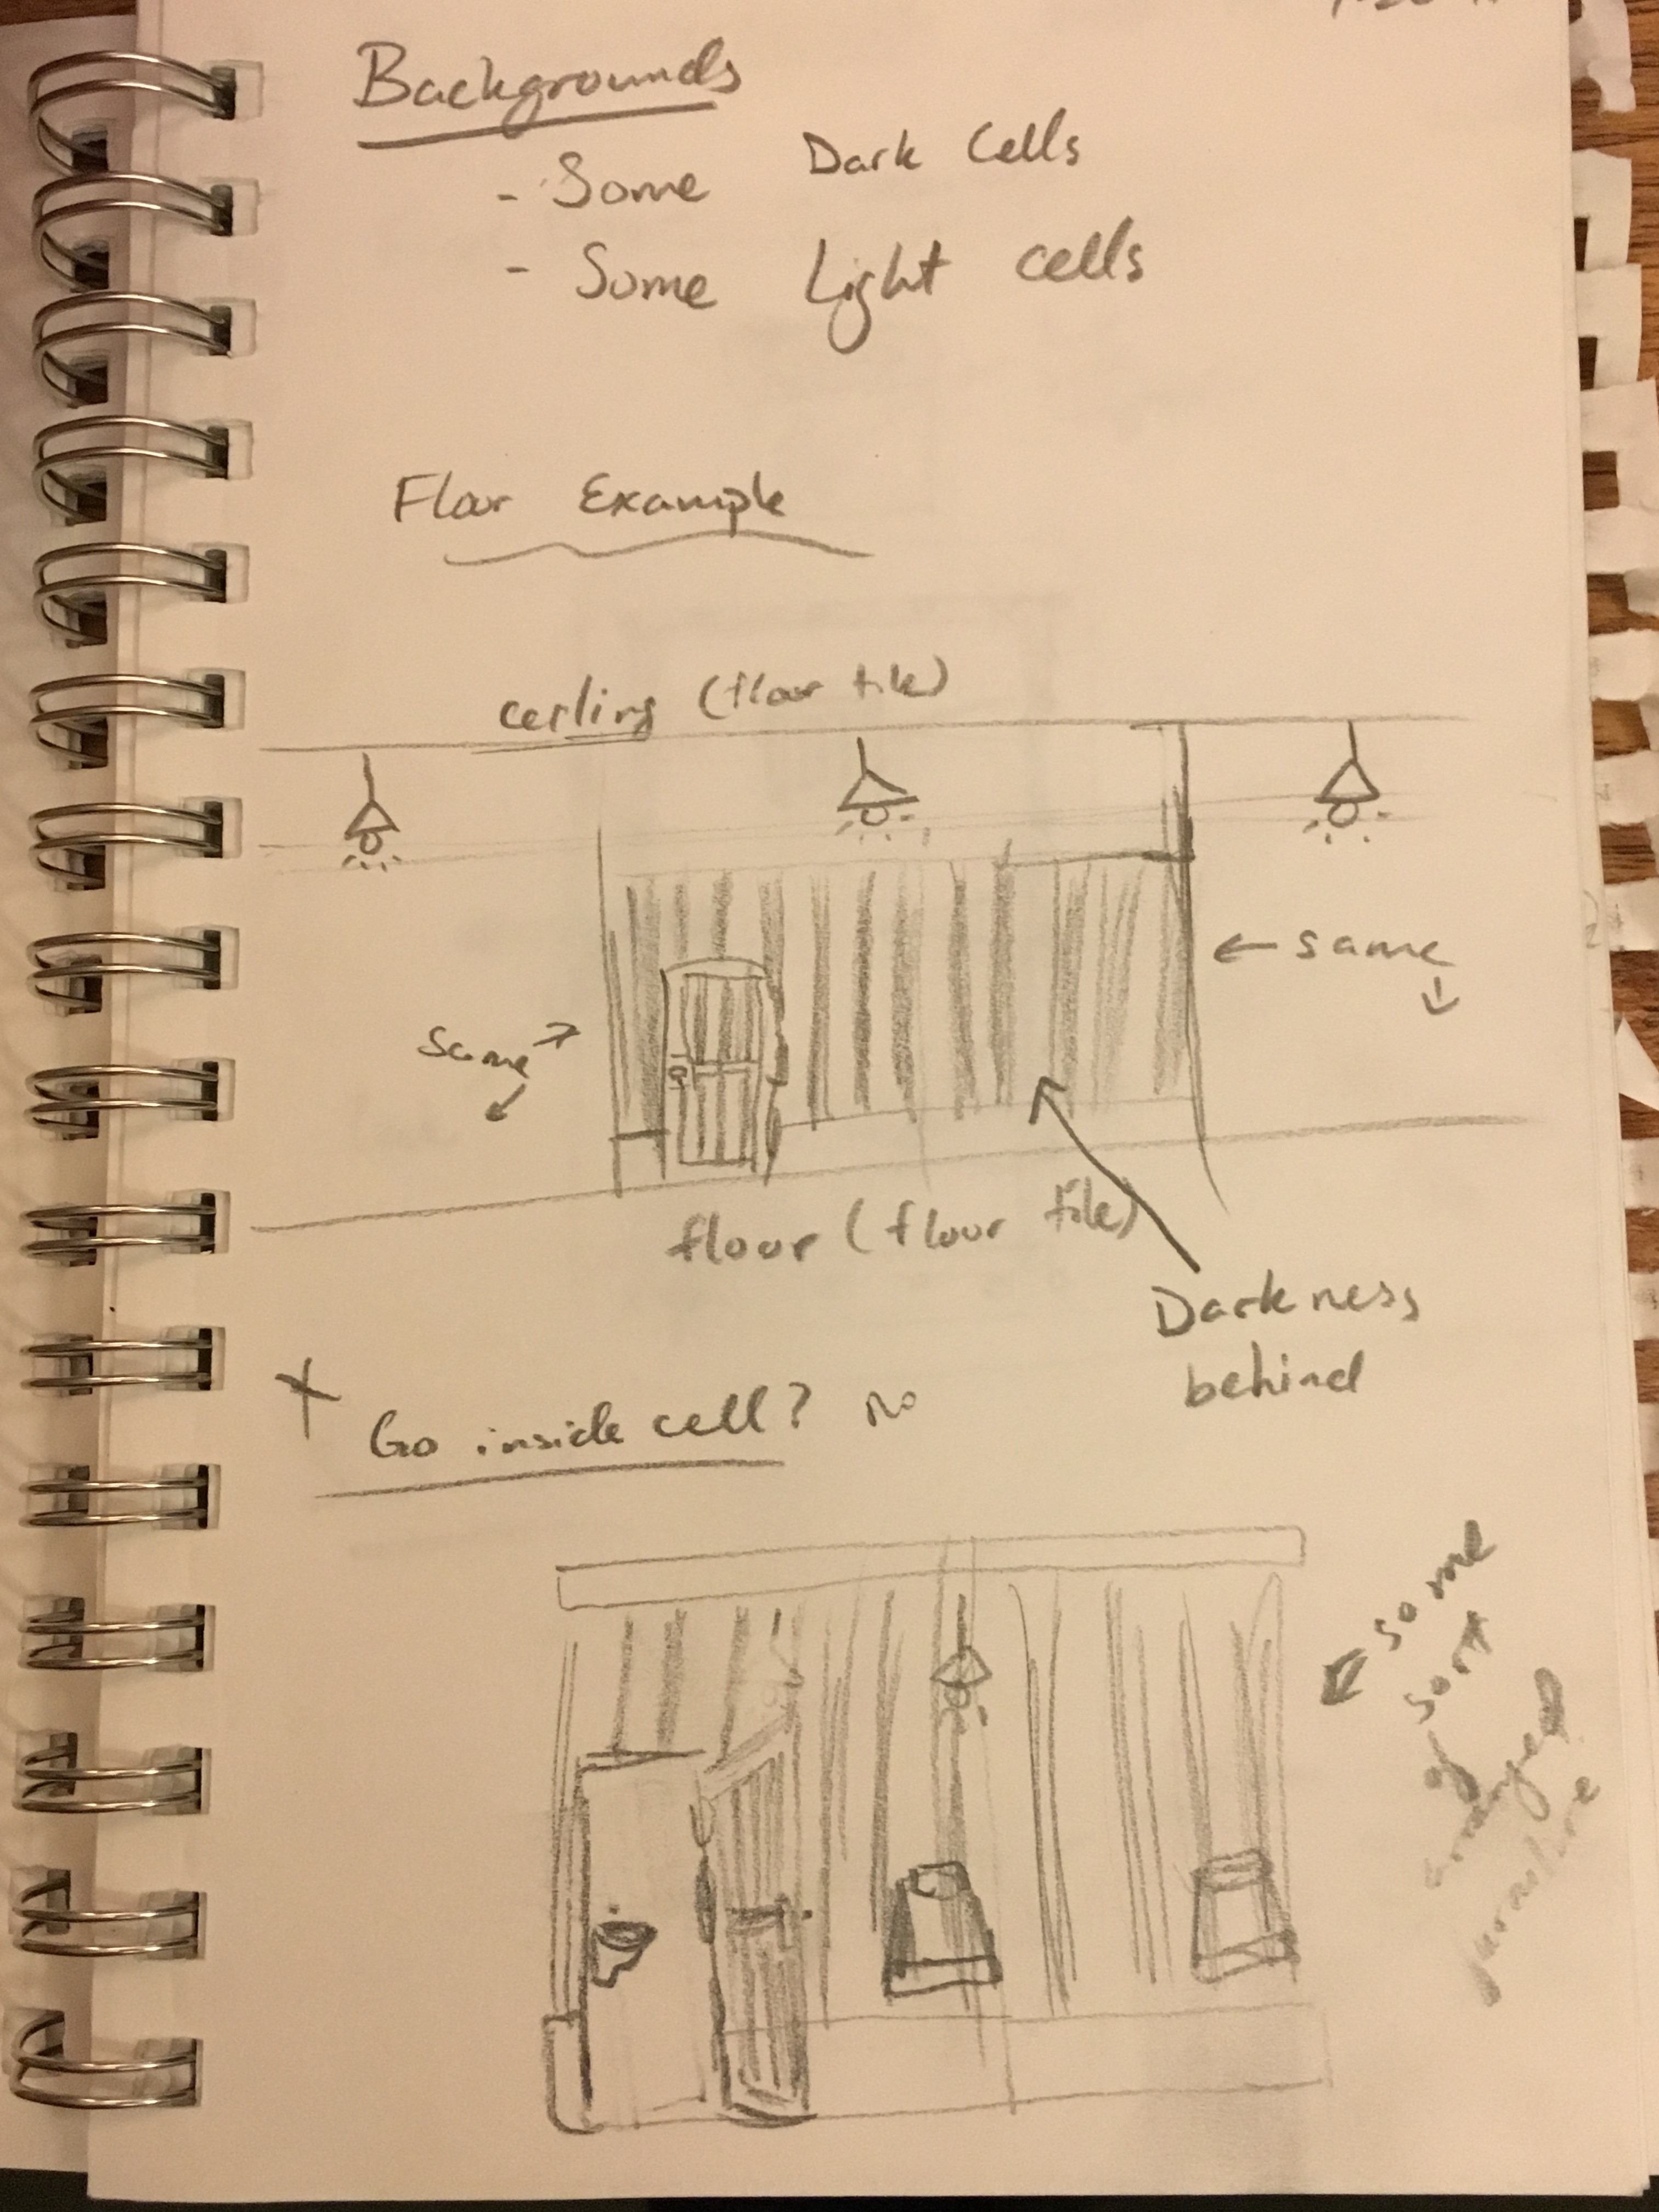 Backgrounds
- Some Dark Cells
- Some Light cells
Floor Example
ceiling (floor tile)
← same ↓
same → ↙
floor (floor tile)
Darkness
behind
Go inside cell? no
some
sort
of